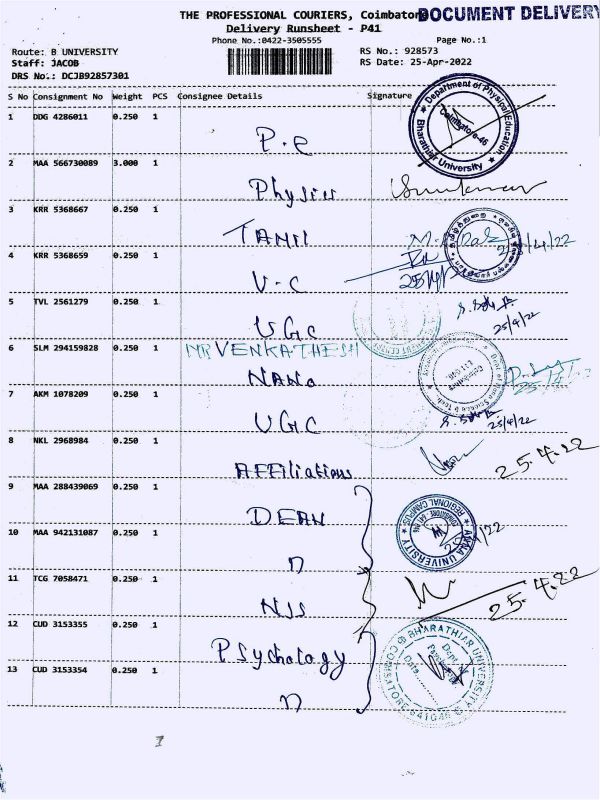 THE PROFESSIONAL COURIERS, Coimbatore DOCUMENT DELIVERY
Delivery Runsheet - P41
Phone No.:0422-3505555 Page No.:1
Route: B UNIVERSITY RS No.: 928573
Staff: JACOB RS Date: 25-Apr-2022
DRS No.: DCJB92857301
S No Consignment No Weight PCS Consignee Details Signature
1 DDG 4286011 0.250 1 P.e
Department of Physical Education
Coimbatore-46
Bharathiar University
2 MAA 566730089 3.000 1 Physics
3 KRR 5368667 0.250 1 TAMIL
4 KRR 5368659 0.250 1 V-C
5 TVL 2561279 0.250 1 UGC
25/4/22
6 SLM 294159828 0.250 1 MR VENKATHESH
NANO
7 AKM 1078209 0.250 1 UGC
25/4/22
8 NKL 2968984 0.250 1 Affiliations
25.4.22
9 MAA 288439069 0.250 1 DEAN
ANNA UNIVERSITY
REGIONAL CAMPUS
10 MAA 942131087 0.250 1 n
11 TCG 7058471 0.250 1 NSS
25.4.22
12 CUD 3153355 0.250 1 Psychology
BHARATHIAR UNIVERSITY
COIMBATORE 641046
13 CUD 3153354 0.250 1 n